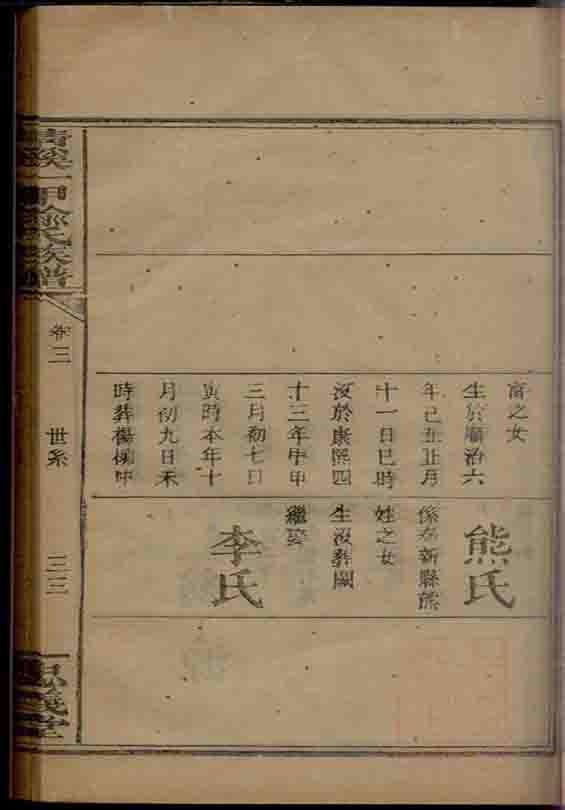 富之女
生於順治六
年己丑正月
十一日巳時
沒於康熙四
十三年甲申
三月初七日
寅時本年十
月初九日未
時葬楊柳
熊氏
係奉新縣熊
姓之女
生沒葬闕
繼娶
李氏
清溪一甲氏族譜
卷三
世系
三三
義堂